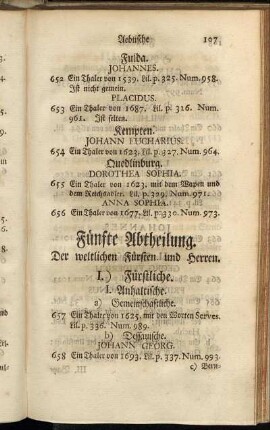 Aebtische 197
Fulda.
JOHANNES.
652 Ein Thaler von 1539. Lil. p. 325. Num. 958.
Ist nicht gemein.
PLACIDUS.
653 Ein Thaler von 1687. Lil. p. 326. Num.
961. Ist selten.
Kempten.
JOHANN EUCHARIUS.
654 Ein Thaler von 1623. Lil. p. 327. Num. 964.
Quedlinburg.
DOROTHEA SOPHIA.
655 Ein Thaler von 1623. mit dem Wapen und
dem Reichsadler. Lil. p. 329. Num. 971.
ANNA SOPHIA.
656 Ein Thaler von 1677. Lil. p. 330. Num. 973.
Fünfte Abtheilung.
Der weltlichen Fürsten und Herren.
I.) Fürstliche.
1. Anhaltische.
a) Gemeinschaftliche.
657 Ein Thaler von 1625. mit den Worten Serves.
Lil. p. 336. Num. 989.
b) Dessauische.
JOHANN GEORG.
658 Ein Thaler von 1693. Lil. p. 337. Num. 993.